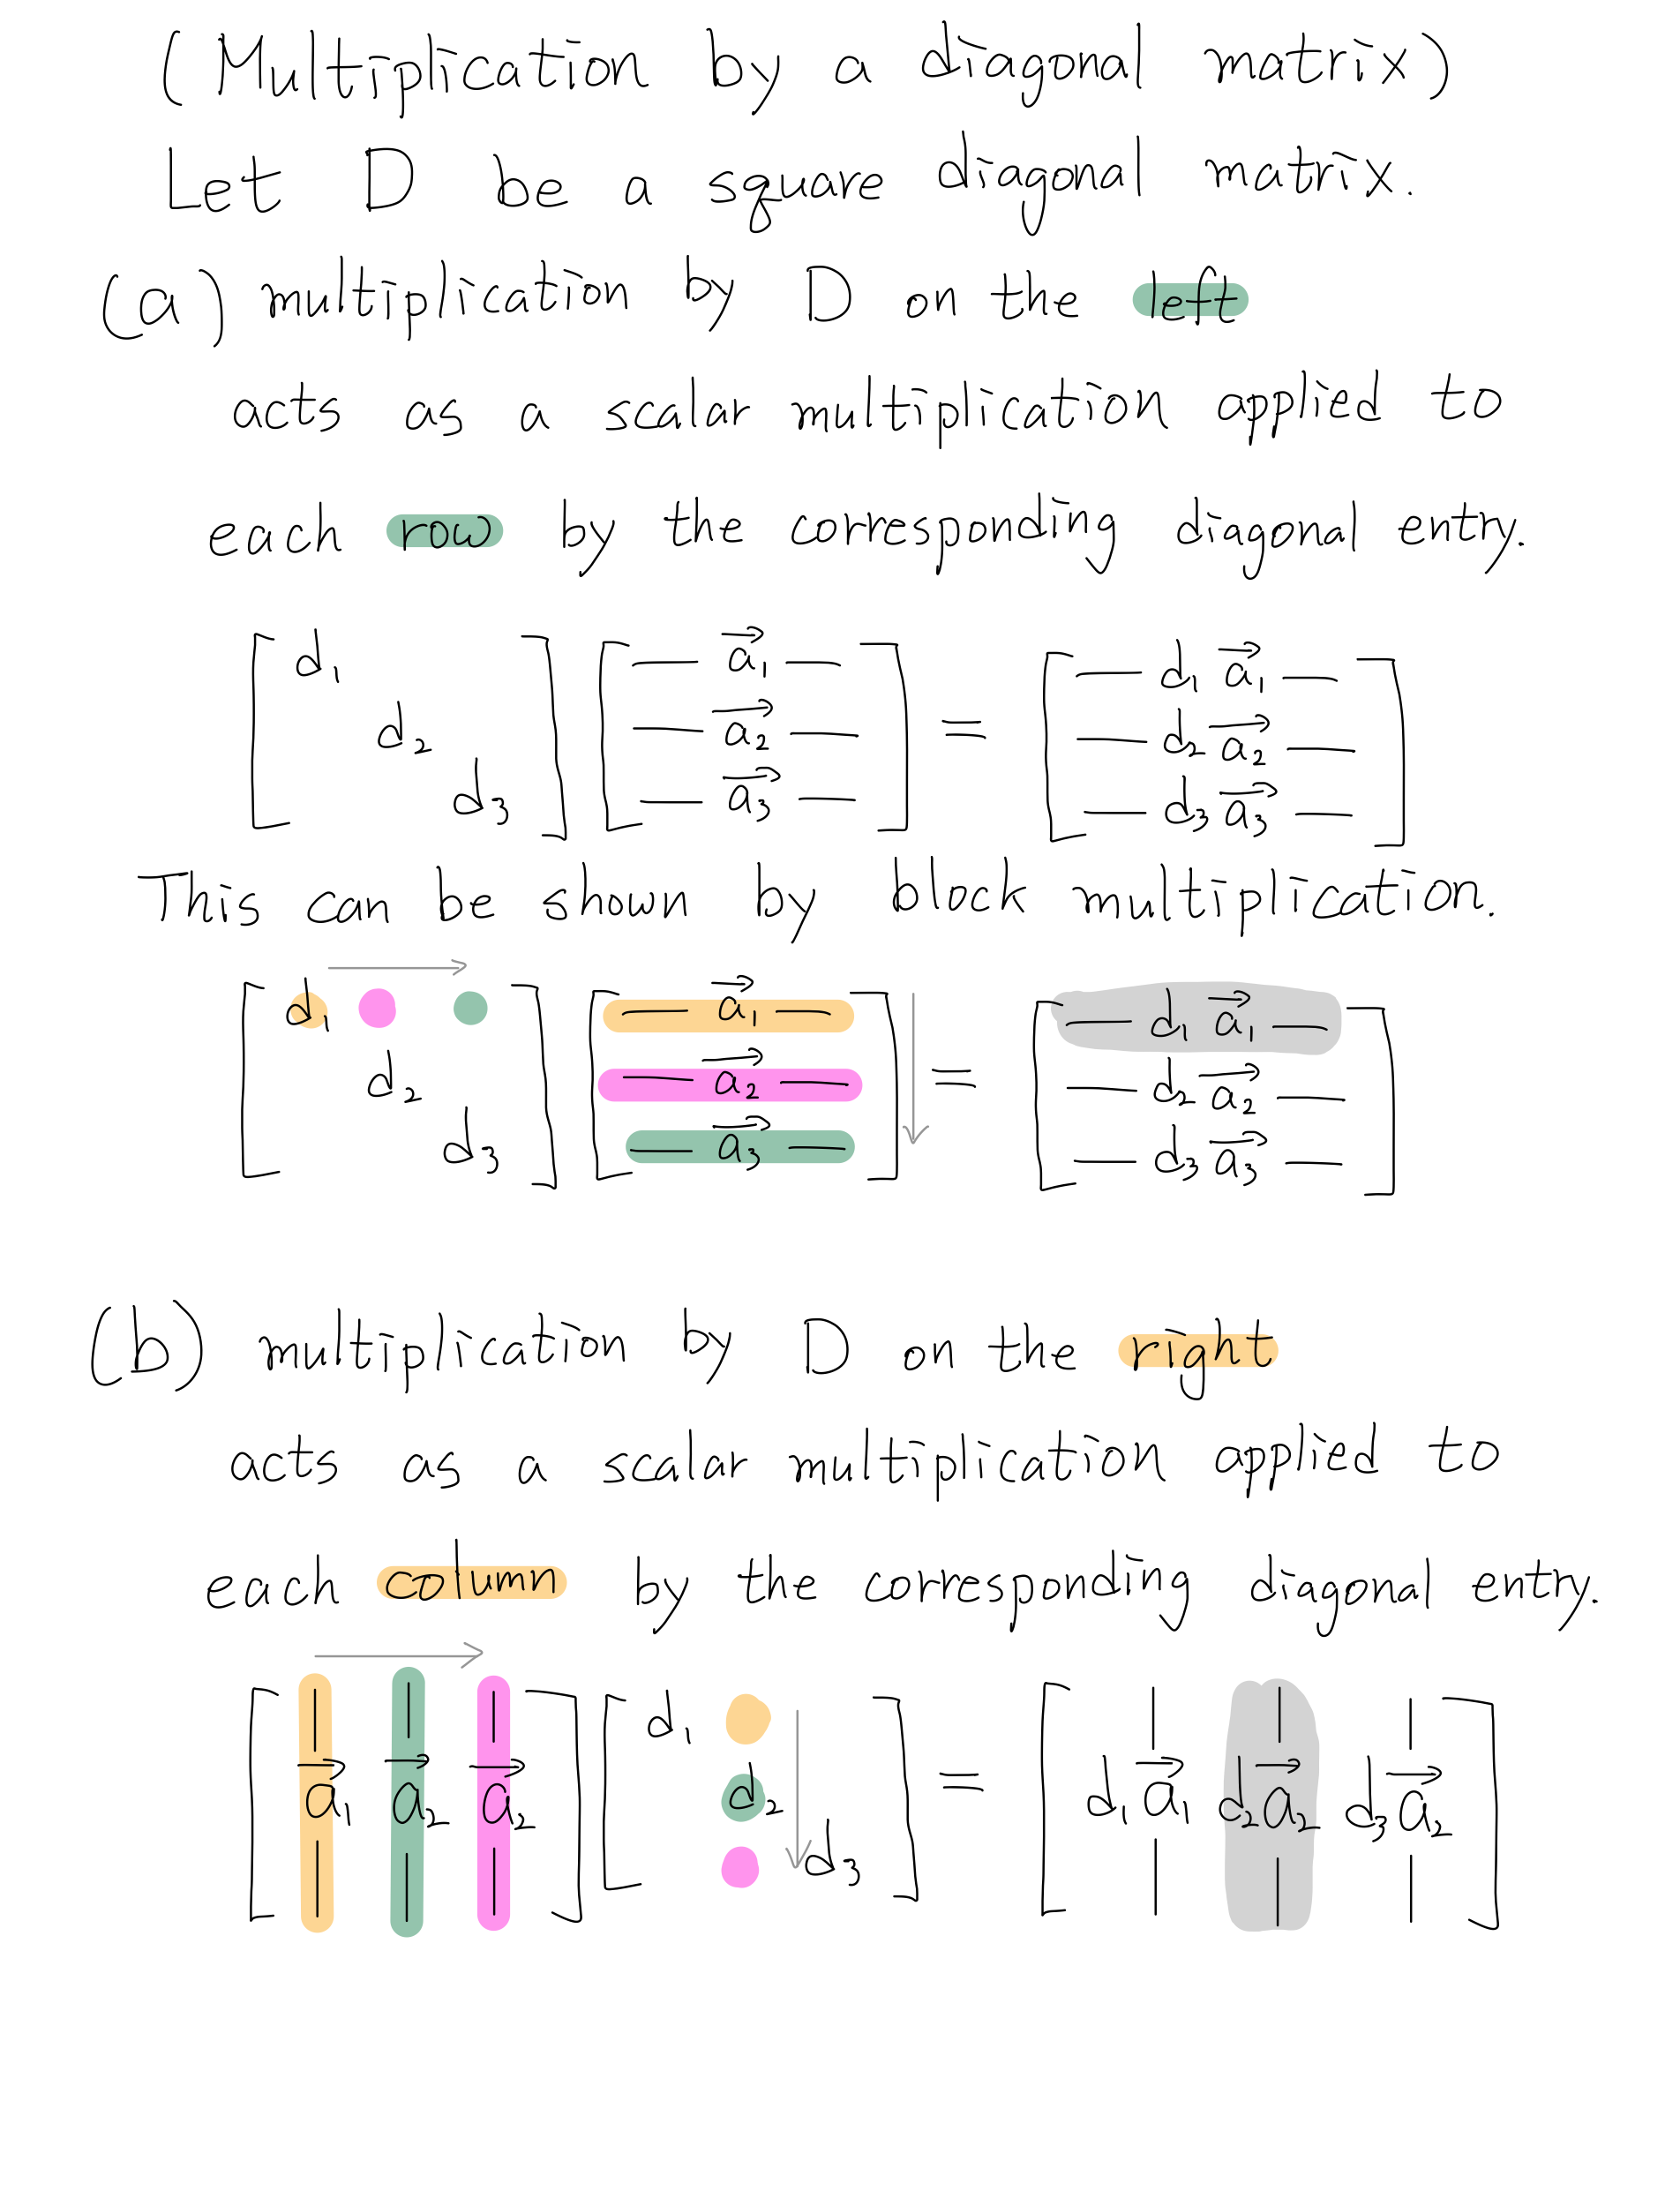 (Multiplication by a diagonal matrix)
Let D be a square diagonal matrix.
(a) multiplication by D on the left
acts as a scalar multiplication applied to
each row by the corresponding diagonal entry.
[ d₁ d₂ d₃ ] [ — a⃗₁ — — a⃗₂ — — a⃗₃ — ] = [ — d₁ a⃗₁ — — d₂ a⃗₂ — — d₃ a⃗₃ — ]
This can be shown by block multiplication.
[ d₁ d₂ d₃ ] [ — a⃗₁ — — a⃗₂ — — a⃗₃ — ] = [ — d₁ a⃗₁ — — d₂ a⃗₂ — — d₃ a⃗₃ — ]
(b) multiplication by D on the right
acts as a scalar multiplication applied to
each column by the corresponding diagonal entry.
[ a⃗₁ a⃗₂ a⃗₂ ] [ d₁ d₂ d₃ ] = [ d₁ a⃗₁ d₂ a⃗₂ d₃ a⃗₂ ]